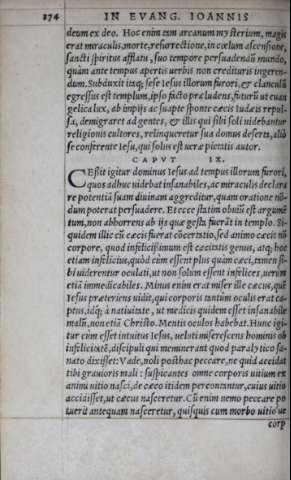 274 IN EVANG. IOANNIS
deum ex deo. Hoc enim tum arcanum mysterium, magis
erat miraculis, morte, resurrectione, in cœlum ascensione,
sancti spiritus afflatu, suo tempore persuadendũ mundo,
quàm ante tempus apertis uerbis non credituris ingeren-
dum. Subduxit itaq; sese Iesus illorum furori, & clanculũ
egressus est templum, ipso facto præludens, futurũ ut euan
gelica lux, ab impijs ac suapte sponte cæcis Iudæis repul-
sa, demigraret ad gentes, & illis qui sibi soli uidebantur
religionis cultores, relinqueretur sua domus deserta, alió
se conferente Iesu, qui solus est ueræ pietatis autor.
CAPVT IX.
CEssit igitur dominus Iesus ad tempus illorum furori,
quos adhuc uidebat insanabiles, ac miraculis declara
re potentiã suam diuinam aggreditur, quam oratione nõ-
dum poterat persuadere. Et ecce statim obuiũ est argumẽ
tum, non abhorrens ab ijs quæ gesta fuerãt in templo. Si-
quidem illic cũ cæcis fuerat cõcertatio, sed animo cæcis nõ
corpore, quod infelicissimum est cæcitatis genus, atq; hoc
etiam infelicius, quòd cùm essent plus quàm cæci, tamen si-
bi uiderentur oculati, ut non solum essent infelices, uerùm
etiã immedicabiles. Minus enim erat miser ille cæcus, quẽ
Iesus præteriens uidit, qui corporis tantùm oculis erat ca-
ptus, idq; à natiuitate, ut medicis quidem esset insanabile
malũ, non etiã Christo. Mentis oculos habebat. Hunc igi-
tur cùm esset intuitus Iesus, ueluti miserescens hominis ob
infelicitatẽ, discipuli qui meminerant quod paralytico sa-
nato dixisset: Vade, noli posthac peccare, ne quid accidat
tibi grauioris mali: suspicantes omne corporis uitium ex
animi uitio nasci, de cæco itidem percontantur, cuius uitio
accidisset, ut cæcus nasceretur. Cũ enim nemo peccare po
tuerit antequam nasceretur, quisquis cum morbo uitio ue
corp